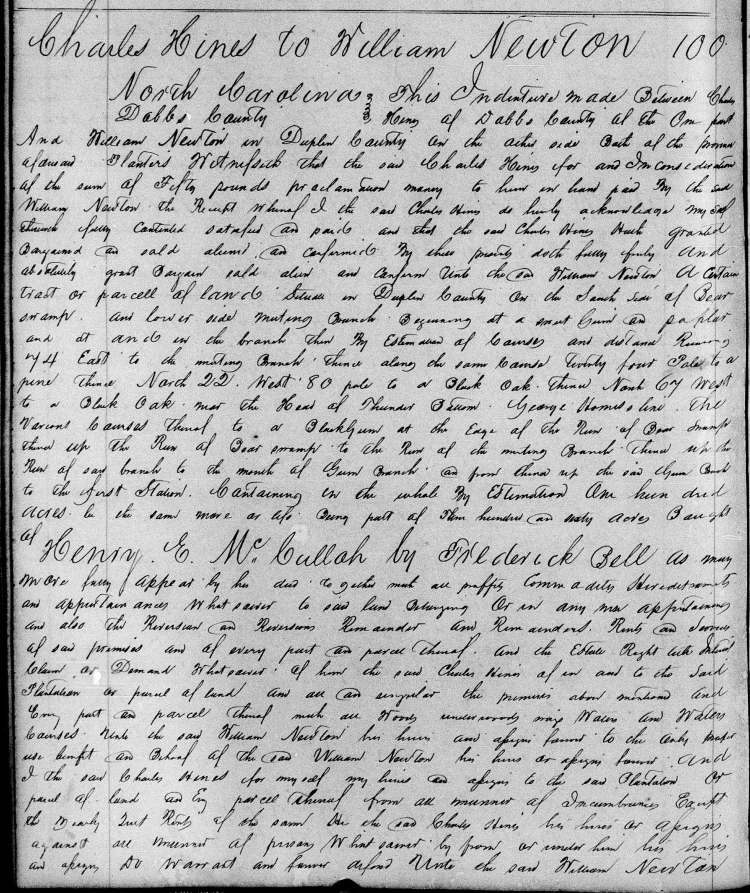 Charles Hines to William Newton 100
North Carolina This Indenture made Between Charles
Dobbs County Hines of Dobbs County of the One part
And William Newton in Duplin County on the other side Both of the province
aforesaid Planters Witnesseth that the said Charles Hines for and In consideration
of the sum of Fifty pounds proclamation money to him in hand paid By the said
William Newton the Receipt whereof I the said Charles Hines do hereby acknowledge myself
fully contented satisfied and paid and that the said Charles Hines Hath granted
Bargained and sold aliened and confirmed By these presents doth fully freely And
absolutely grant Bargain sold alien and confirm Unto the said William Newton A Certain
tract or parcell of land Situate in Duplin County On the South Side of Bear
swamp and lower side muting Branch Beginning at a sweet Gum and a poplar
and at and in the branch then By Estimation of Courses and distance Running
74 East to the muting Branch thence along the same Course Twenty four Poles to a
pine thence North 22 West 80 pole to a Black Oak thence North 67 West
to a Black Oak near the Head of Thunder Bottom George line The
Various Courses thereof to a Blackgum at the Edge of the Run of Bear Swamp
thence up the Run of Bear swamp to the Run of the muting Branch thence up the
Run of said branch to the mouth of Gum Branch and from thence up the said Gum Branch
to the first Station. Containing in the whole By Estimation One hundred
acres be the same more or less Being part of Three hundred and sixty acres Bought
of
Henry E. McCulloh by Frederick Bell as may
more fully Appear by his deed Together with all proffits Commodities Hereditaments
and appurtainances Whatsoever to said land Belonging Or in any wise appertaining
and also the Reversion and Reversions Remainder and Remainders. Rents and Services
of said premises and of every part and parcel Thereof. And the Estate Right title Interest
Claim or Demand Whatsoever of him the said Charles Hines of in and to the Said
Plantation or parcel of land and all and singular the premises above mentioned And
Every part and parcel thereof with all Woods underwoods ways Waters and Waters
Courses Unto the said William Newton his heirs and assigns forever to the only proper
use benefit and Behoof of the said William Newton his heirs or assigns forever And
I the said Charles Hines for myself my heirs and assigns to the said Plantation Or
parcel of land and Every parcel thereof from all manner of Incumbrances Except
the yearly Quit Rents of the same the said Charles Hines his heirs or assigns
against all manner of persons Whatsoever by from or under him his heirs
and assigns Do Warrant and forever defend Unto the said William Newton